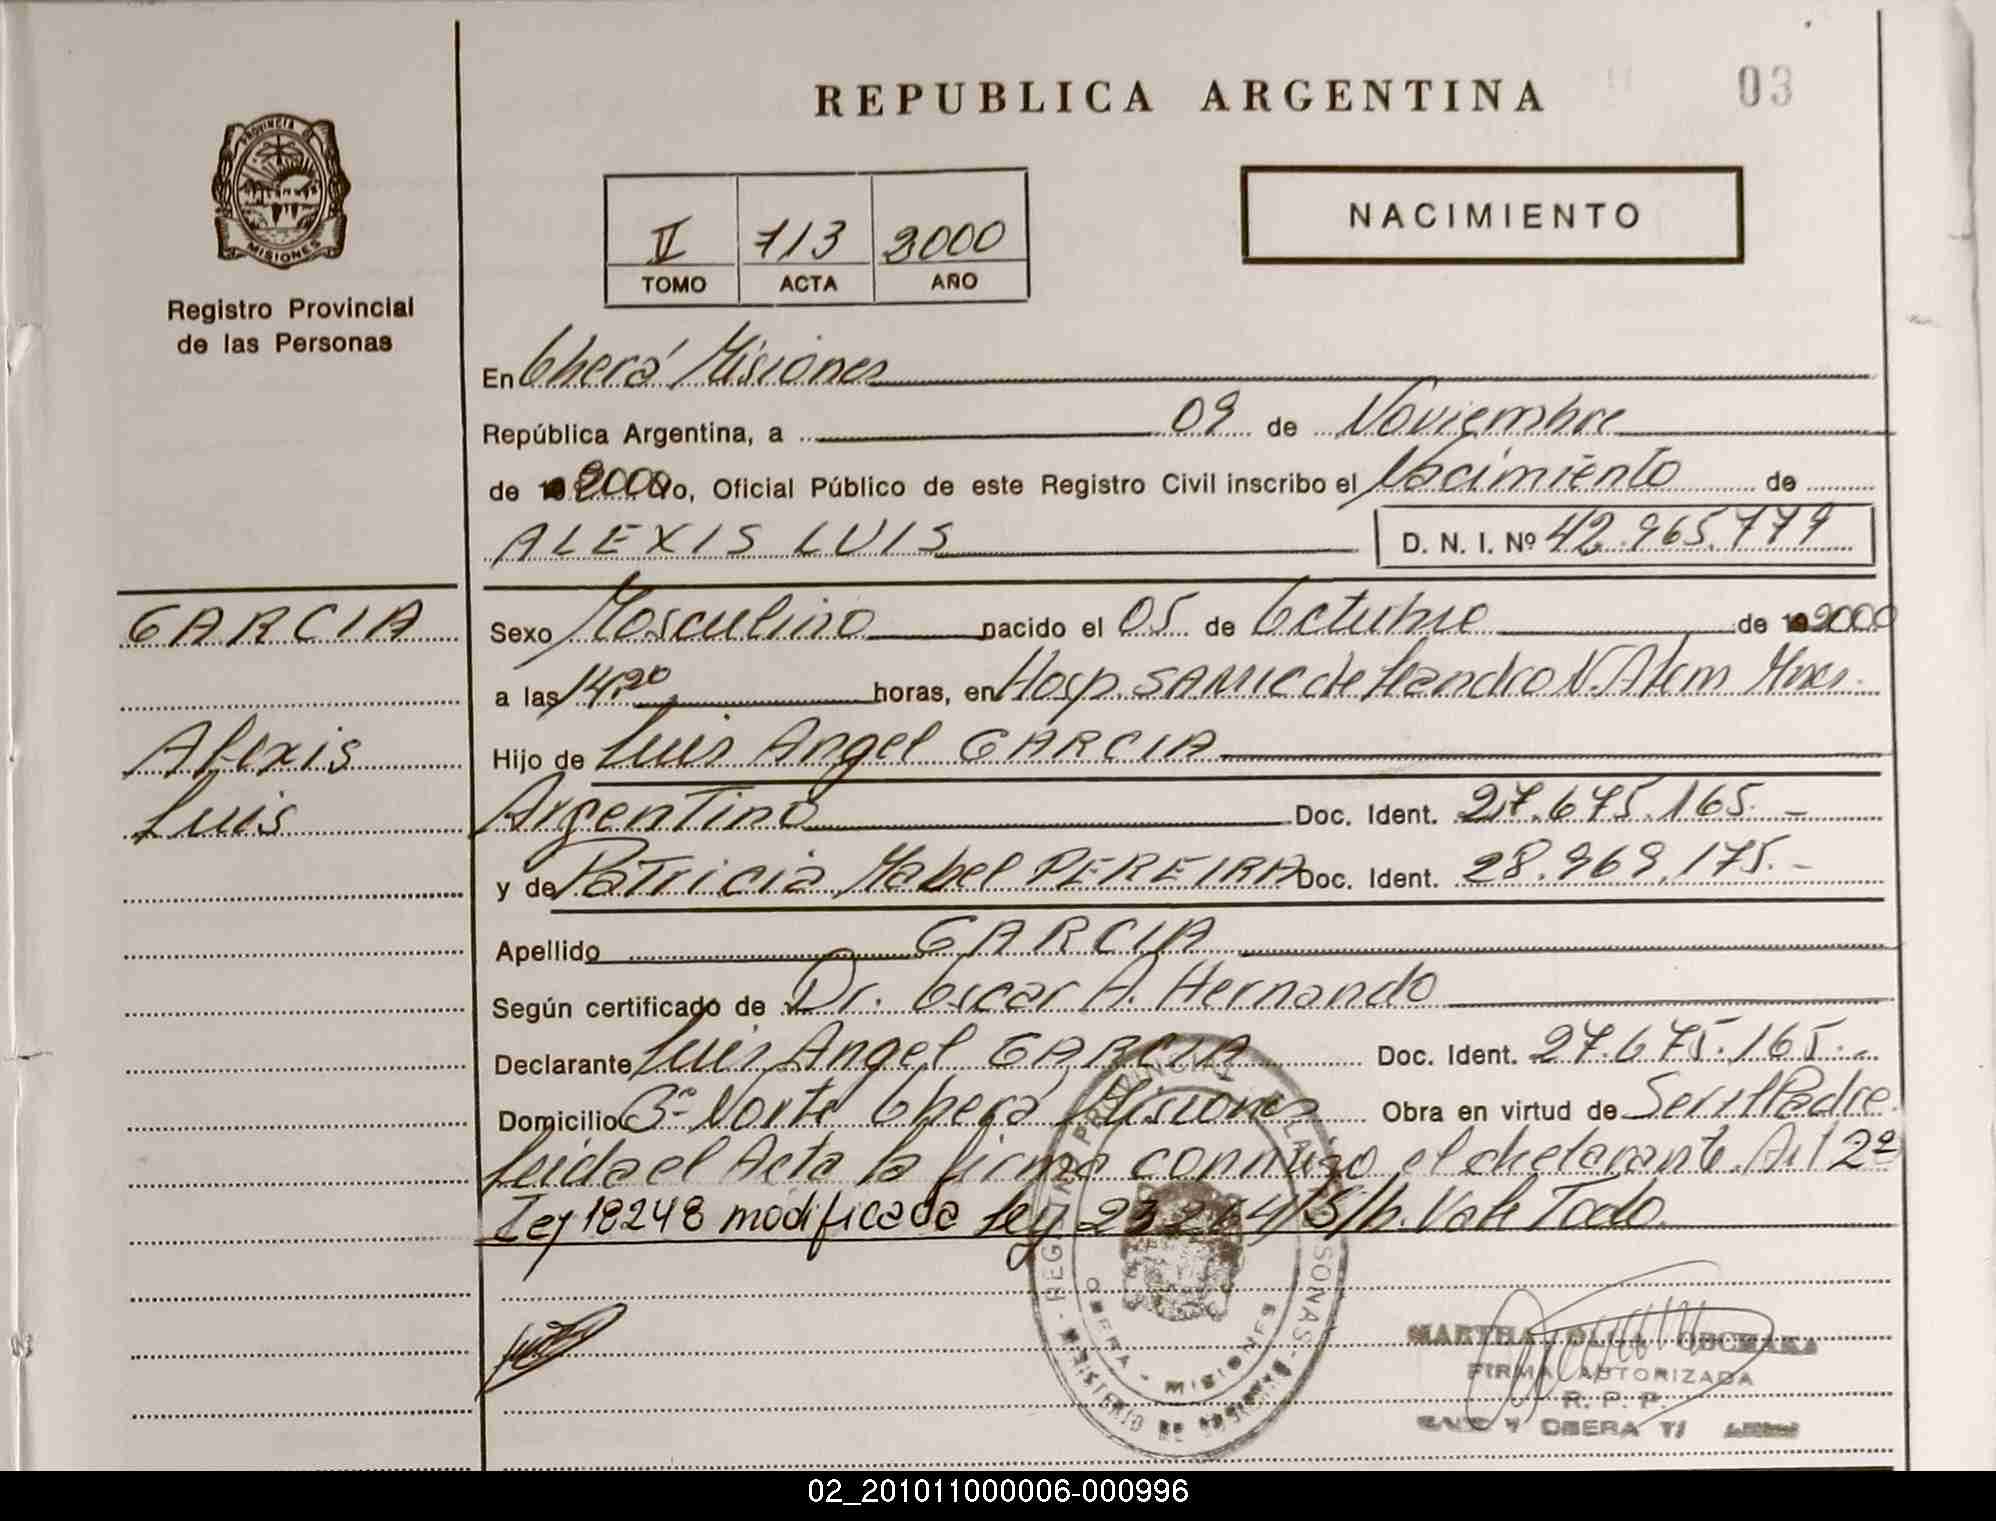 REPUBLICA ARGENTINA
03
PROVINCIA DE
MISIONES
Registro Provincial
de las Personas
II 713 2000
TOMO ACTA AÑO
NACIMIENTO
En Oberá Misiones
República Argentina, a 09 de Noviembre
de 2000 Yo, Oficial Público de este Registro Civil inscribo el Nacimiento de
ALEXIS LUIS D. N. I. Nº 42.965.779
GARCIA
Sexo Masculino nacido el 05 de Octubre de 2000
a las 14,20 horas, en Hosp. SAMIC de Leandro N. Alem Mnes.
Alexis
Hijo de Luis Angel GARCIA
Luis
Argentino Doc. Ident. 27.675.165.-
y de Patricia Mabel PEREIRA Doc. Ident. 28.969.175.-
Apellido GARCIA
Según certificado de Dr. Oscar A. Hernando
Declarante Luis Angel GARCIA Doc. Ident. 27.675.165.-
Domicilio 3º Norte Oberá Misiones Obra en virtud de Ser el Padre.
Leida el Acta la firma conmigo el declarante. Art 2º
Ley 18248 modificada Ley 23264/S/b. Vale Todo
OBERA - MISIONES
MARTHA OLGA
FIRMA AUTORIZADA
R. P. P.
OBERA
02_201011000006-000996